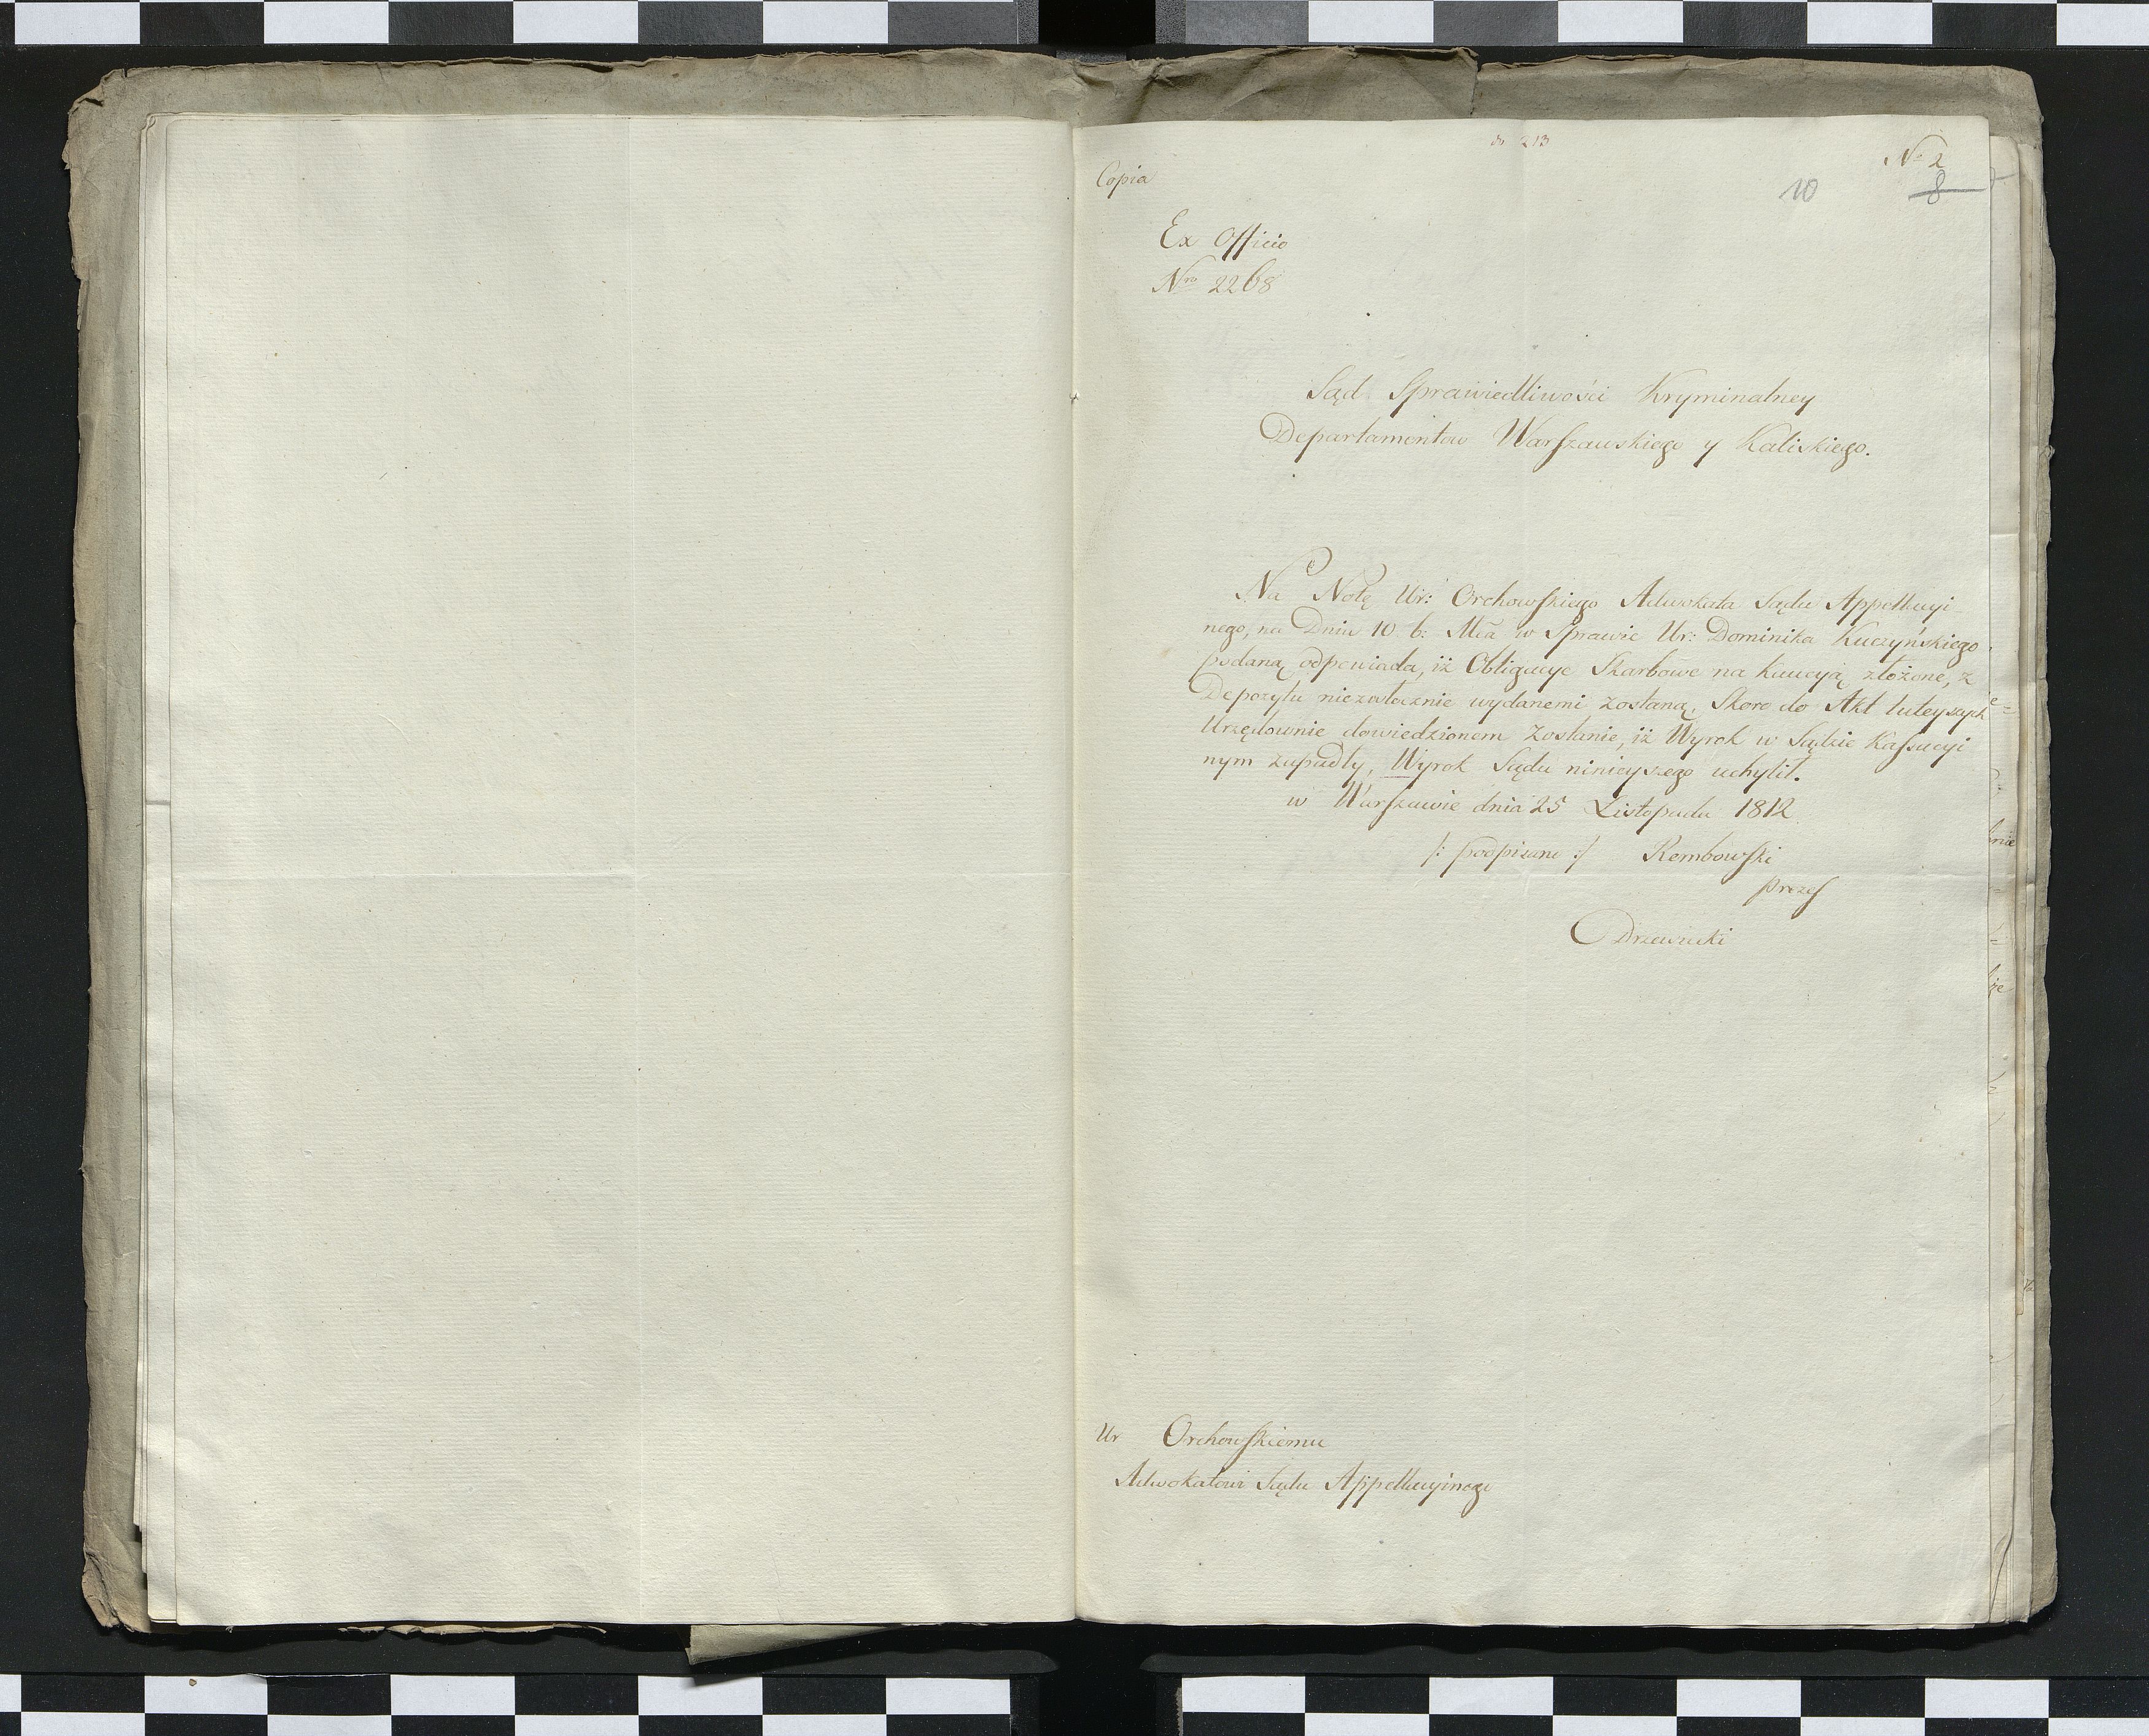 do 213
Copia
No 2
10 8
Ex Officio
Nro 2268
Sąd Sprawiedliwości Kryminalney
Departamentow Warszawskiego y Kaliskiego.
Na Notę Ur: Orchowskiego Adwokata Sądu Appellacyi
nego, na Dniu 10 b: Mca w Sprawie Ur: Dominika Kuczyńskiego
podaną odpowiada, iż Obligacye Skarbowe na kaucyą złożone, z
Depozytu niezwłocznie wydanemi zostaną, Skoro do Akt tuteyszych
Urzędownie dowiedzionem Zostanie, iż Wyrok w Sądzie Kassacyi
nym zapadły, Wyrok Sądu ninieyszego uchylił.
w Warszawie dnia 25 Listopada 1812
/: podpisano :/ Rembowski
prezes
Drzewiecki
Ur Orchowskiemu
Adwokatowi Sądu Appellacyinego